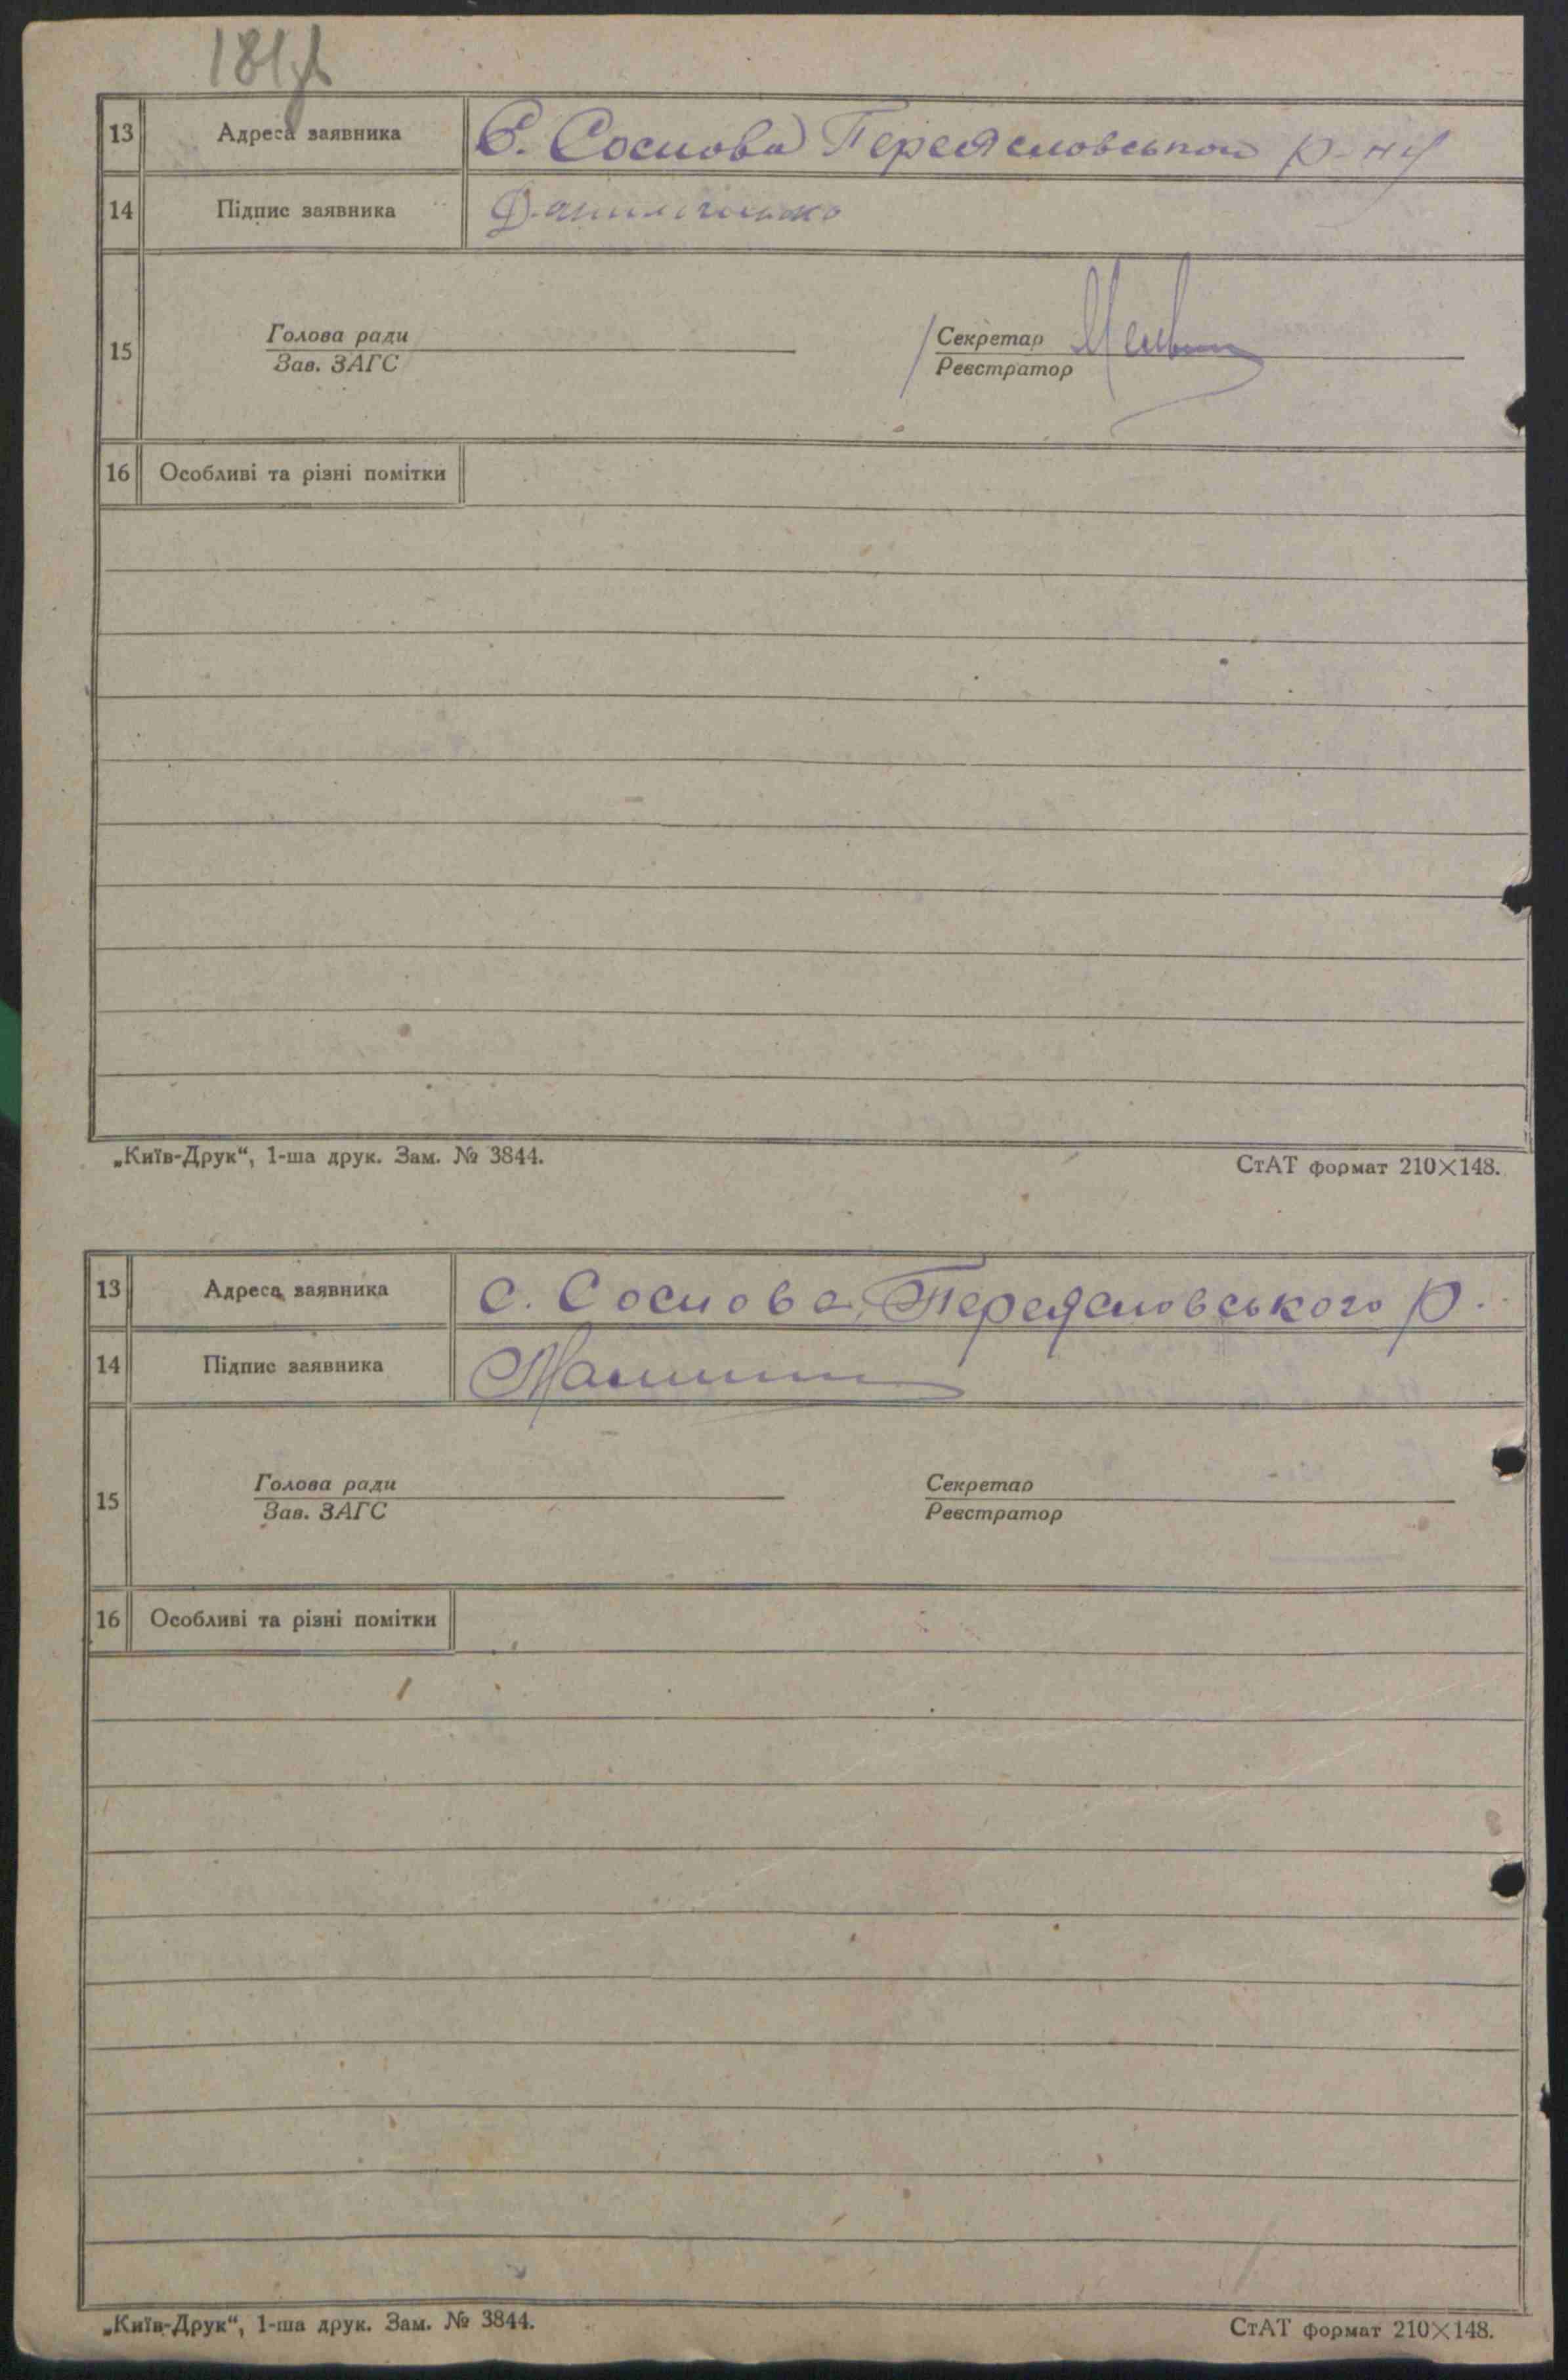 13 Адреса заявника С. Соснова Переяславського р-ну
14 Підпис заявника
15 Голова ради
Зав. ЗАГС
Секретар
Реєстратор
16 Особливі та різні помітки
„Київ-Друк“, 1-ша друк. Зам. № 3844. СтАТ формат 210×148.
13 Адреса заявника с. Соснова, Переяславського р.
14 Підпис заявника
15 Голова ради
Зав. ЗАГС
Секретар
Реєстратор
16 Особливі та різні помітки
„Київ-Друк“, 1-ша друк. Зам. № 3844. СтАТ формат 210×148.